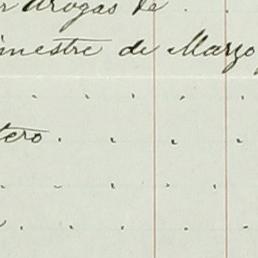 r drogas de . .
imestre de Marzo
tero . . . .